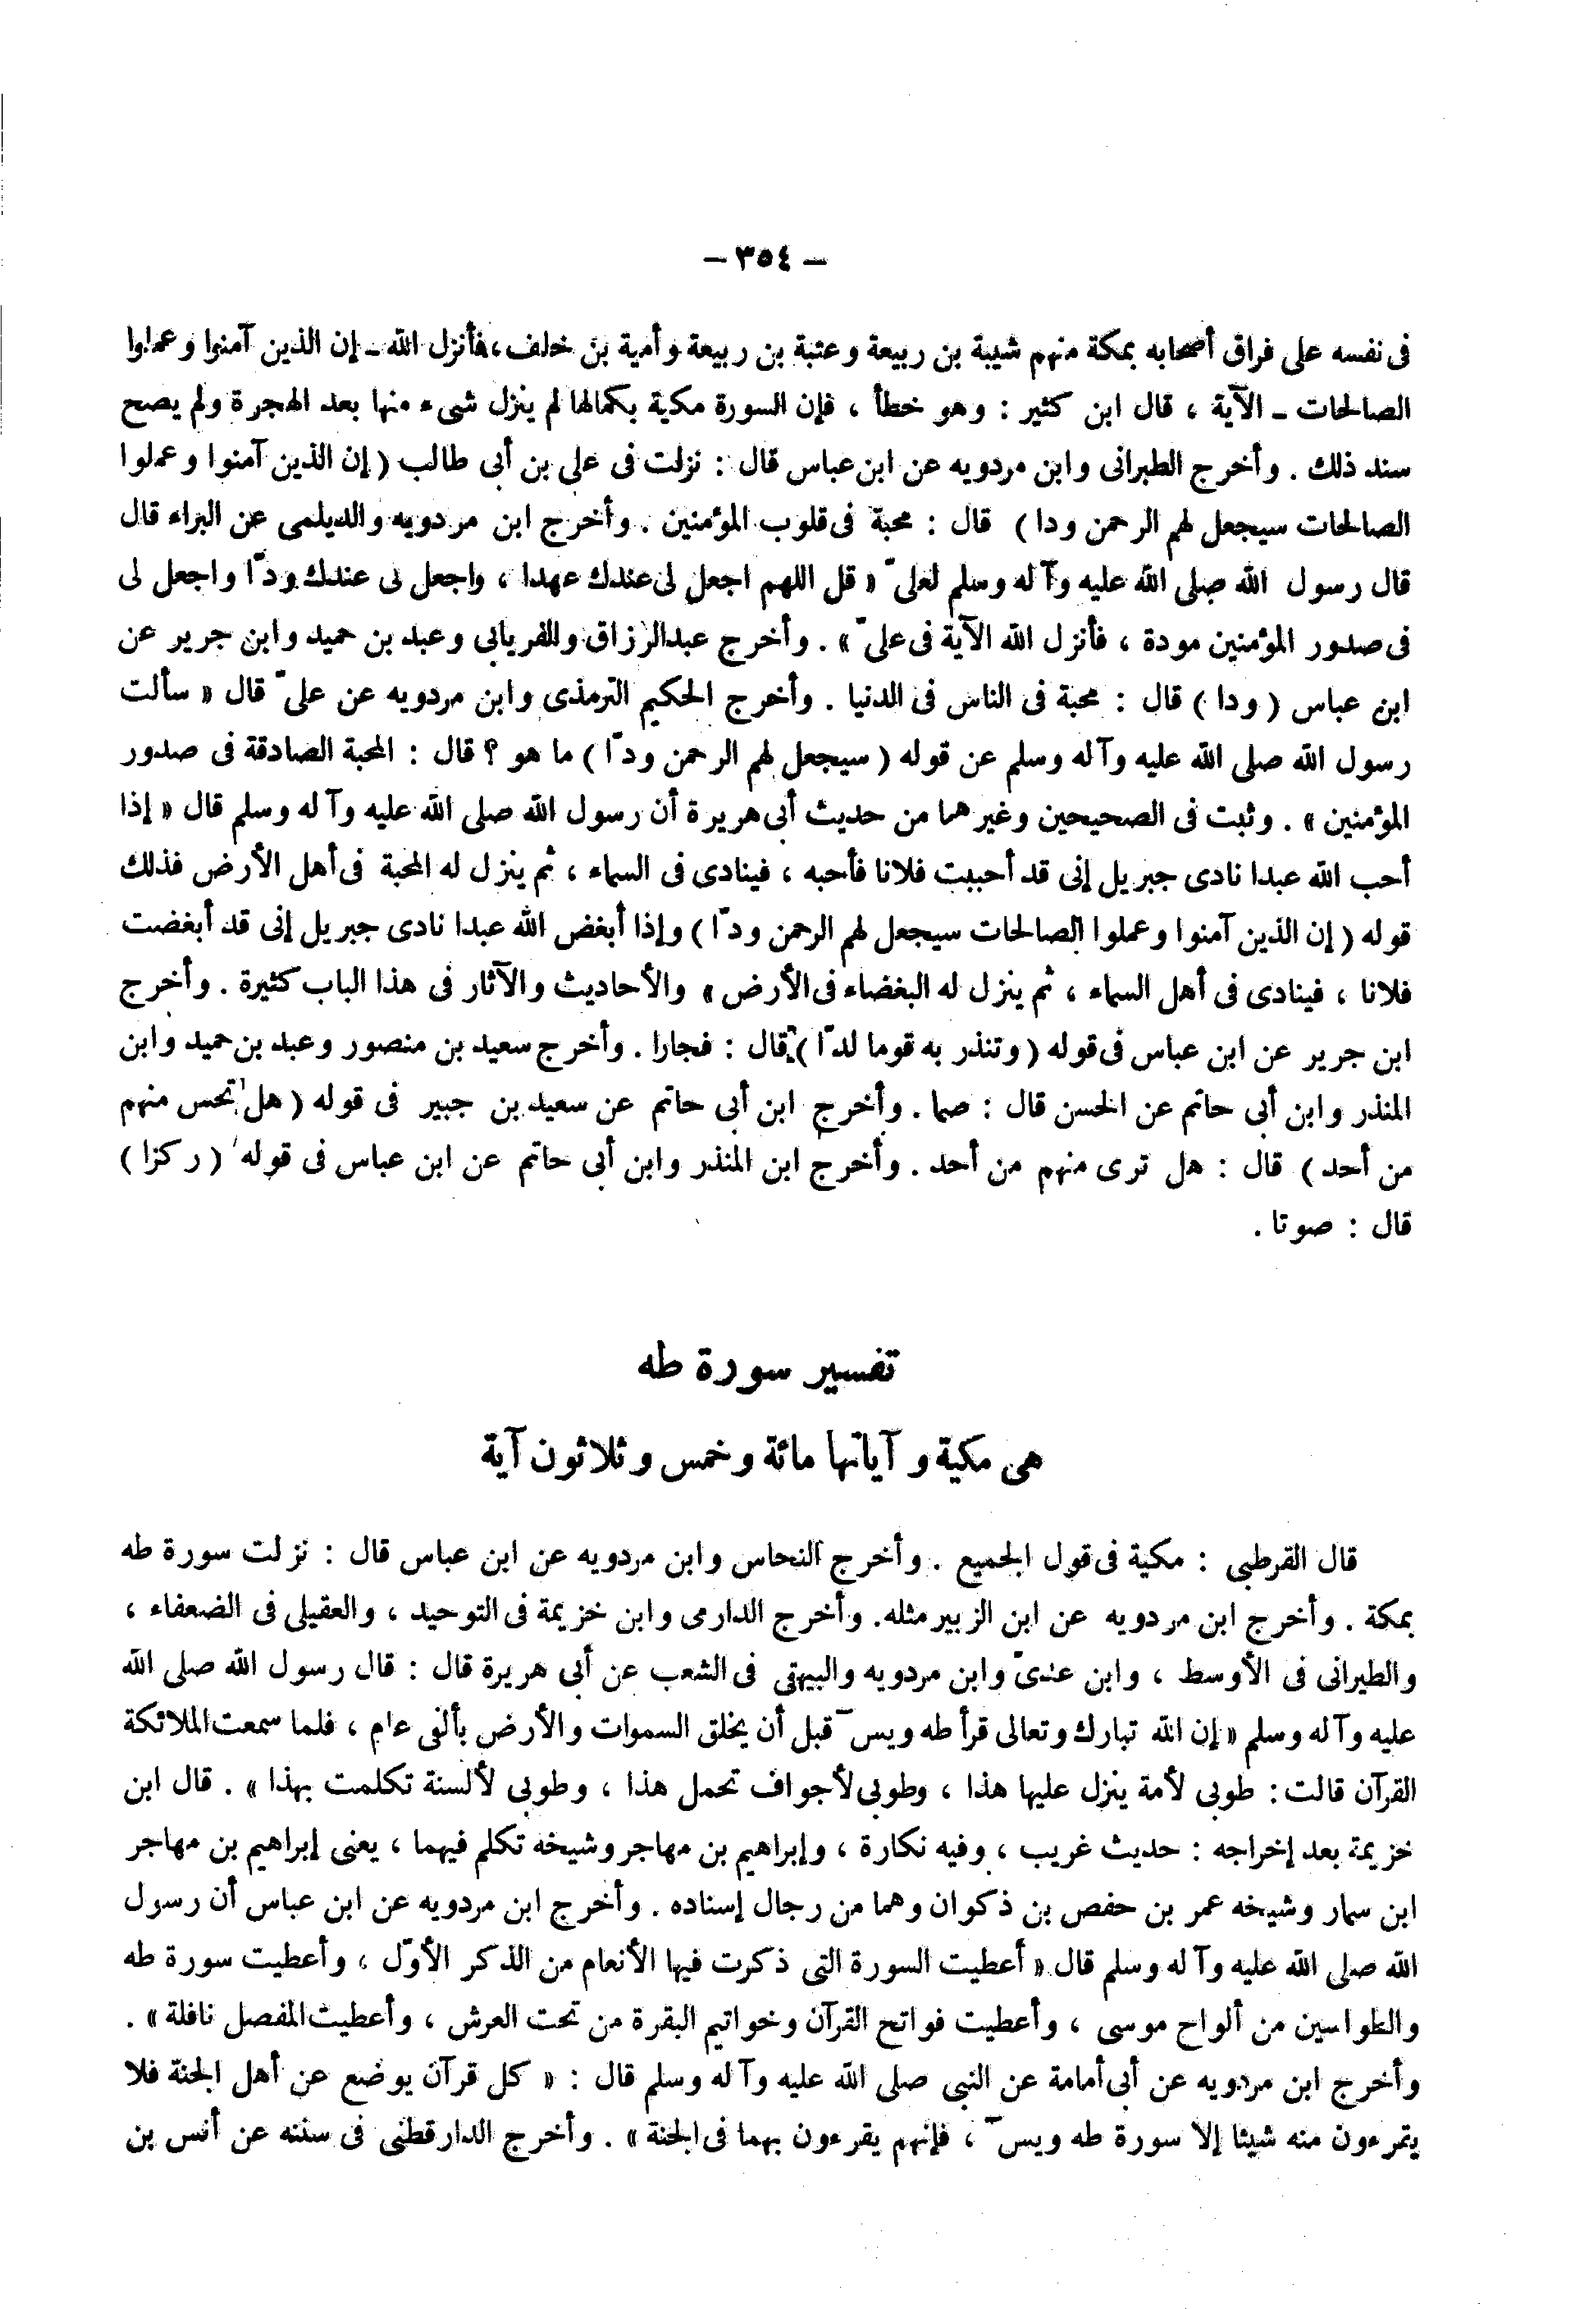 – ٣٥٤ –
فى نفسه على فراق أصحابه بمكة منهم شيبة بن ربيعة وعتبة بن ربيعة وأمية بن خلف، فأنزل الله ـ إن الذين آمنوا وعملوا
الصالحات ـ الآية ، قال ابن كثير : وهو خطأ ، فإن السورة مكية بكمالها لم ينزل شىء منها بعد الهجرة ولم يصح
سند ذلك . وأخرج الطبرانى وابن مردويه عن ابن عباس قال : نزلت فى على بن أبى طالب ( إن الذين آمنوا وعملوا
الصالحات سيجعل لهم الرحمن ودا ) قال : محبة فى قلوب المؤمنين . وأخرج ابن مردويه والديلمى عن البراء قال
قال رسول الله صلى الله عليه وآله وسلم لعلىّ « قل اللهم اجعل لى عندك عهدا ، واجعل لى عندك ودّا واجعل لى
فى صدور المؤمنين مودة ، فأنزل الله الآية فى علىّ » . وأخرج عبدالرزاق والفريابى وعبد بن حميد وابن جرير عن
ابن عباس ( ودا ) قال : محبة فى الناس فى الدنيا . وأخرج الحكيم الترمذى وابن مردويه عن علىّ قال « سألت
رسول الله صلى الله عليه وآله وسلم عن قوله ( سيجعل لهم الرحمن ودّا ) ما هو ؟ قال : المحبة الصادقة فى صدور
المؤمنين » . وثبت فى الصحيحين وغيرهما من حديث أبى هريرة أن رسول الله صلى الله عليه وآله وسلم قال « إذا
أحب الله عبدا نادى جبريل إنى قد أحببت فلانا فأحبه ، فينادى فى السماء ، ثم ينزل له المحبة فى أهل الأرض فذلك
قوله ( إن الذين آمنوا وعملوا الصالحات سيجعل لهم الرحمن ودّا ) وإذا أبغض الله عبدا نادى جبريل إنى قد أبغضت
فلانا ، فينادى فى أهل السماء ، ثم ينزل له البغضاء فى الأرض » والأحاديث والآثار فى هذا الباب كثيرة . وأخرج
ابن جرير عن ابن عباس فى قوله ( وتنذر به قوما لدّا ) قال : فجارا . وأخرج سعيد بن منصور وعبد بن حميد وابن
المنذر وابن أبى حاتم عن الحسن قال : صما . وأخرج ابن أبى حاتم عن سعيد بن جبير فى قوله ( هل تحس منهم
من أحد ) قال : هل ترى منهم من أحد . وأخرج ابن المنذر وابن أبى حاتم عن ابن عباس فى قوله ( ركزا )
قال : صوتا .
تفسير سورة طه
هى مكية وآياتها مائة وخمس وثلاثون آية
قال القرطبى : مكية فى قول الجميع . وأخرج النحاس وابن مردويه عن ابن عباس قال : نزلت سورة طه
بمكة . وأخرج ابن مردويه عن ابن الزبير مثله. وأخرج الدارمى وابن خزيمة فى التوحيد ، والعقيلى فى الضعفاء ،
والطبرانى فى الأوسط ، وابن عدىّ وابن مردويه والبيهقى فى الشعب عن أبى هريرة قال : قال رسول الله صلى الله
عليه وآله وسلم « إن الله تبارك وتعالى قرأ طه ويسۤ قبل أن يخلق السموات والأرض بألفى عام ، فلما سمعت الملائكة
القرآن قالت : طوبى لأمة ينزل عليها هذا ، وطوبى لأجواف تحمل هذا ، وطوبى لألسنة تكلمت بهذا » . قال ابن
خزيمة بعد إخراجه : حديث غريب ، وفيه نكارة ، وإبراهيم بن مهاجر وشيخه تكلم فيهما ، يعنى إبراهيم بن مهاجر
ابن سمار وشيخه عمر بن حفص بن ذكوان وهما من رجال إسناده . وأخرج ابن مردويه عن ابن عباس أن رسول
الله صلى الله عليه وآله وسلم قال « أعطيت السورة التى ذكرت فيها الأنعام من الذكر الأوّل ، وأعطيت سورة طه
والطواسين من ألواح موسى ، وأعطيت فواتح القرآن وخواتيم البقرة من تحت العرش ، وأعطيت المفصل نافلة » .
وأخرج ابن مردويه عن أبى أمامة عن النبى صلى الله عليه وآله وسلم قال : « كل قرآن يوضع عن أهل الجنة فلا
يقرءون منه شيئا إلا سورة طه ويسۤ ، فإنهم يقرءون بهما فى الجنة » . وأخرج الدارقطنى فى سننه عن أنس بن